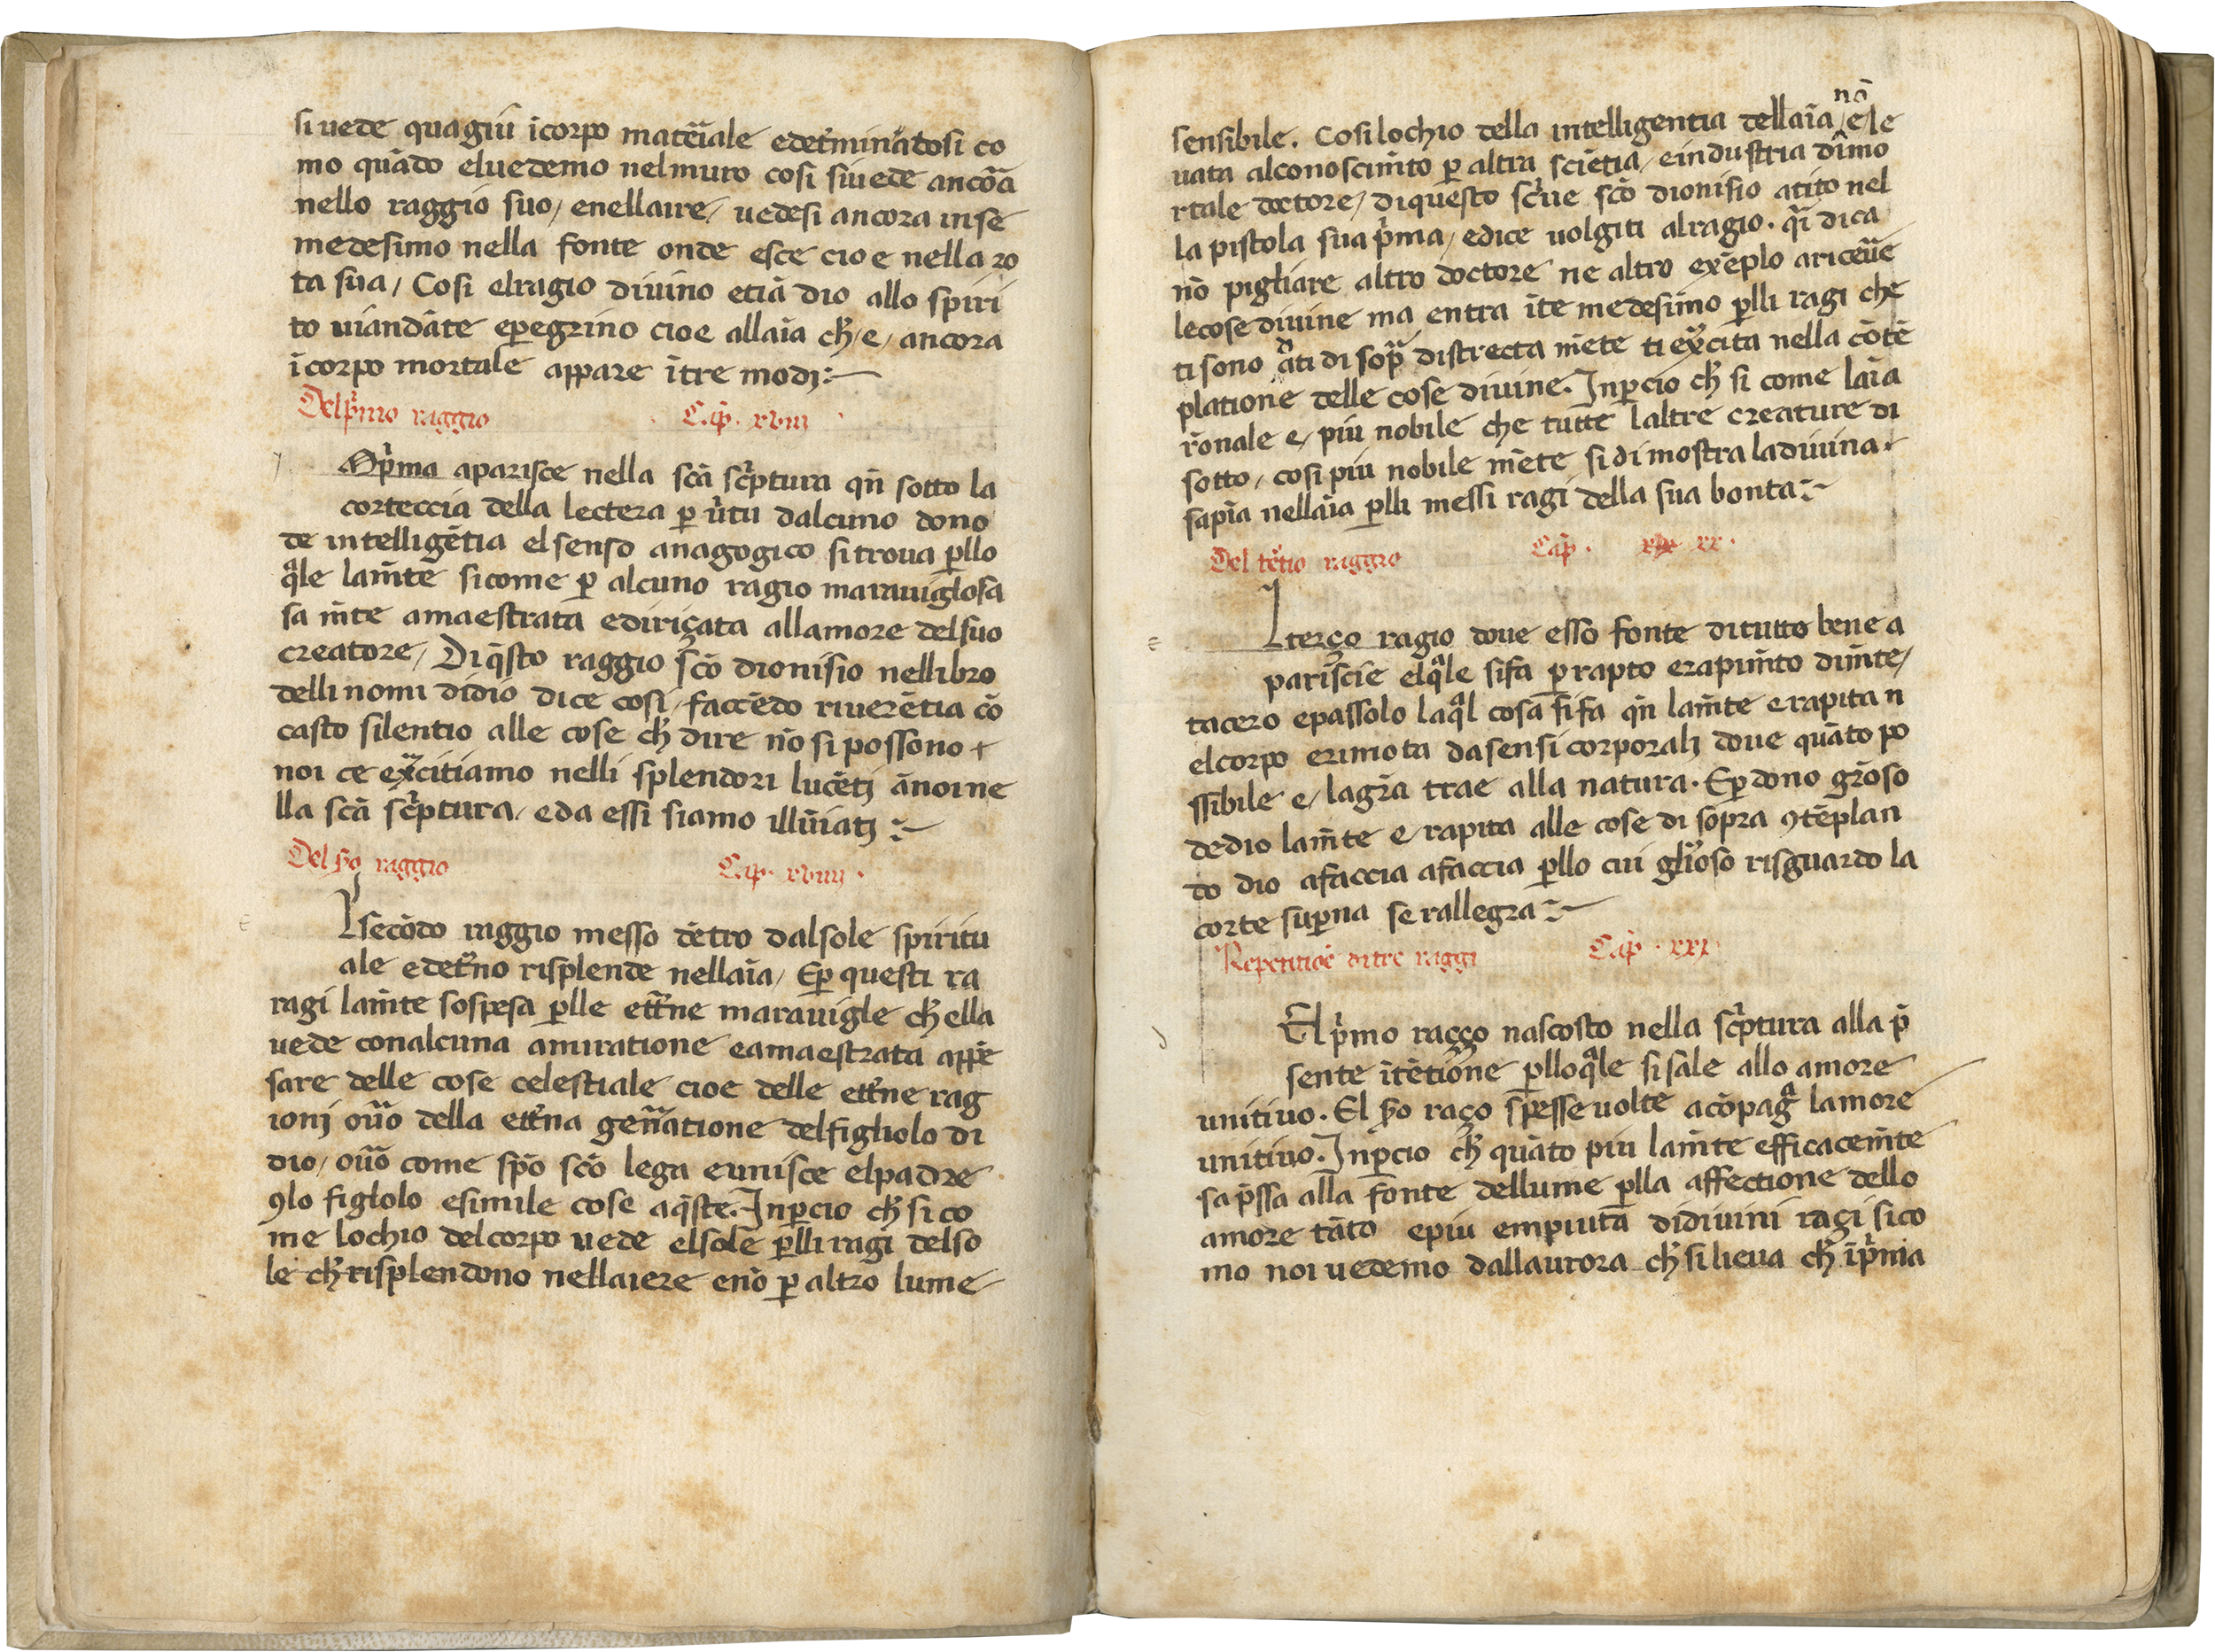 si uede quagiu ī corpo mat̄iale edet̄minatosi co
mo quādo eluedemo nelmuro cosi siuede ancōa
nello raggio suo / enellaire / uedesi ancora in se
medesimo nella fonte onde esce cioe nella ro
ta sua / Cosi elragio diuino etiā dio allo spiri
to uiandāte eꝑegrino cioe allaīa cħ / e / ancora
ī corpo mortale appare ī tre modi :~
Del pͥmo raggio Cap̄. xviii
A pͥma aparisce nella scā scͥptura qn̄ sotto la
corteccia della lectera ꝑ uͥtu dalcuno dono
de intelligētia el senso anagogico si troua ꝑllo
qͣle lam̄te si come ꝑ alcuno ragio marauiglosa
sa m̄te amaestrata ediriçata allamore delsuo
creatore / Di qͥsto raggio scō dionisio nellibro
delli nomi didio dice cosi / faccēdo riuerētia cō
casto silentio alle cose cħ dire nō si possono +
noi ce exͣcitiamo nelli splendori lucētj ānoi ne
lla scā scͥptura / eda essi siamo illūiatj :~
Del sͦo raggio Cap̄. xviiii .
L secōdo raggio messo dētro dalsole spiritu
ale edet̄no risplende nellaīa / Eꝑ questi ra
ragi lam̄te sospesa ꝑlle ett̄ne marauigle cħ ella
uede conalcuna amiratione eamaestrata appē
sare delle cose celestiale cioe delle ett̄ne rag
ionj ou̓o della ett̄na gen̄atione delfigliolo di
dio / ou̓o come spō scō lega eunisce elpadre
ꝯlo figlolo esimile cose aqͥste. Inꝑcio cħ si co
me lochio delcorpo uede elsole ꝑlli ragi delso
le cħ risplendono nellaiere enō ꝑ altro lume
sensibile. Cosi lochio della intelligentia dellaīa nō / e / le
uata alconoscim̄to ꝑ altra sciētia / eindustria dīmo
rtale doctore / diquesto scͥue scō dionisio atito nel
la pistola sua pͥma / edice uolgiti alragio. qͥ dica
nō pigliare altro doctore ne altro exēplo ariceūe
lecose diuine ma entra ī te medesimo ꝑlli ragi che
ti sono dati di sopͣ distrecta mēte ti exͣcita nella cōtē
platione delle cose diuine. Inꝑcio cħ si come laīa
r̄onale e / piu nobile che tutte laltre creature di
sotto / cosi piu nobile mēte si dimostra ladiuina
sapīa nellaīa ꝑlli messi ragi della sua bonta :~
Del tēͥtio raggio Cap̄. xix xx .
L terço ragio doue esso fonte ditutto bene a
pariscie elqͣle sifa ꝑ rapto erapim̄to dim̄te /
tacero epassolo laqͣl cosa sifa qn̄ lam̄te e rapita n
elcorpo erimota dasensi corporalj doue quāto po
ssibile e / lagr̄a trae alla natura. Eꝑ dono gr̄oso
dedio lam̄te e / rapita alle cose di sopra ꝯtēplan
do dio afaccia afaccia ꝑllo cui gl̄ioso risguardo la
corte suꝑna se rallegra :~
Repetitiōe di tre raggi Cap̄. xxi
El pͥmo raçço nascosto nella scͥptura alla p̄
sente ītētione ꝑlloqͣle si sale allo amore
unitiuo. El sͦo raço spesse uolte acōpagͣ lamore
unitiuo. Inꝑcio cħ quāto piu lam̄te efficacem̄te
sa p̄ssa alla fonte dellume ꝑlla affectione dello
amore tāto epiu empiuta didiuini ragi si co
mo noi uedemo dallaurora cħ si lieua cħ īpͥma